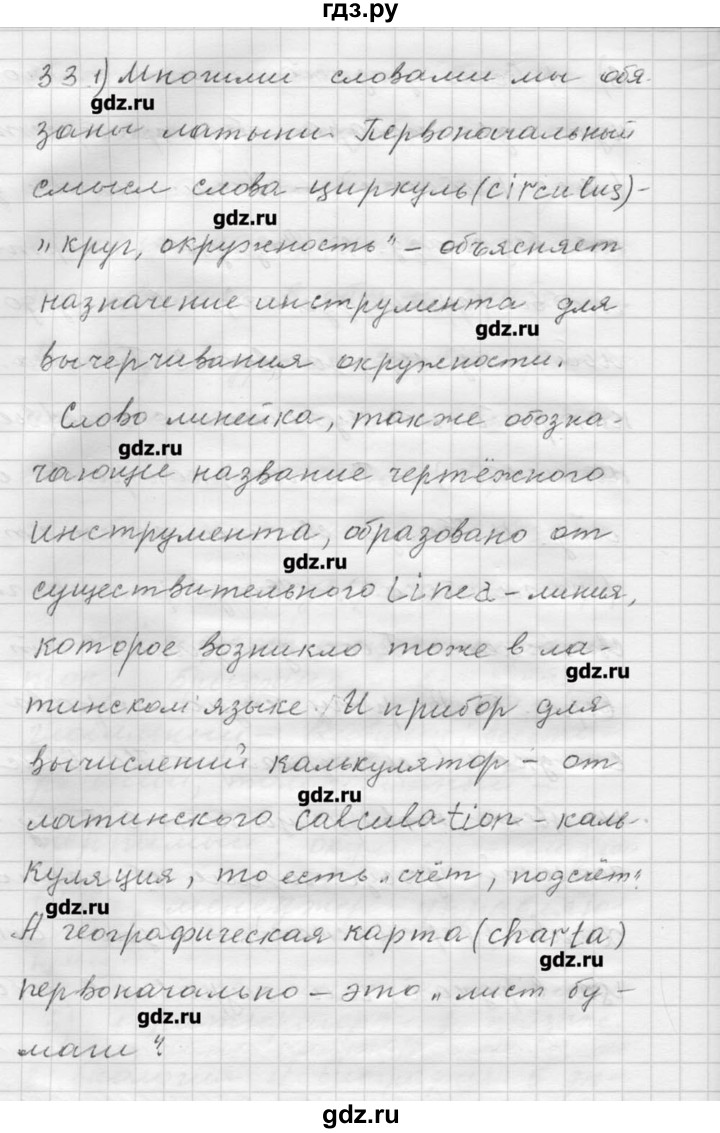 гдз.ру
33 1) Многими словами мы обя-
gdz.ru
заны латыни. Первоначальный
смысл слова циркуль (circulus) -
gdz.ru
„круг, окружность" - объясняет
назначение инструмента для
gdz.ru
вычерчивания окружности.
Слово линейка, также обозна-
gdz.ru
чающие название чертёжного
инструмента, образовано от
gdz.ru
существительного linea - линия,
которое возникло тоже в ла-
gdz.ru
тинском языке. И прибор для
вычислений калькулятор - от
gdz.ru
латинского calculation - каль-
куляция, то есть „счёт, подсчёт".
gdz.ru
А географическая карта (charta)
gdz.ru
первоначально - это „лист бу-
gdz.ru
маги".
gdz.ru